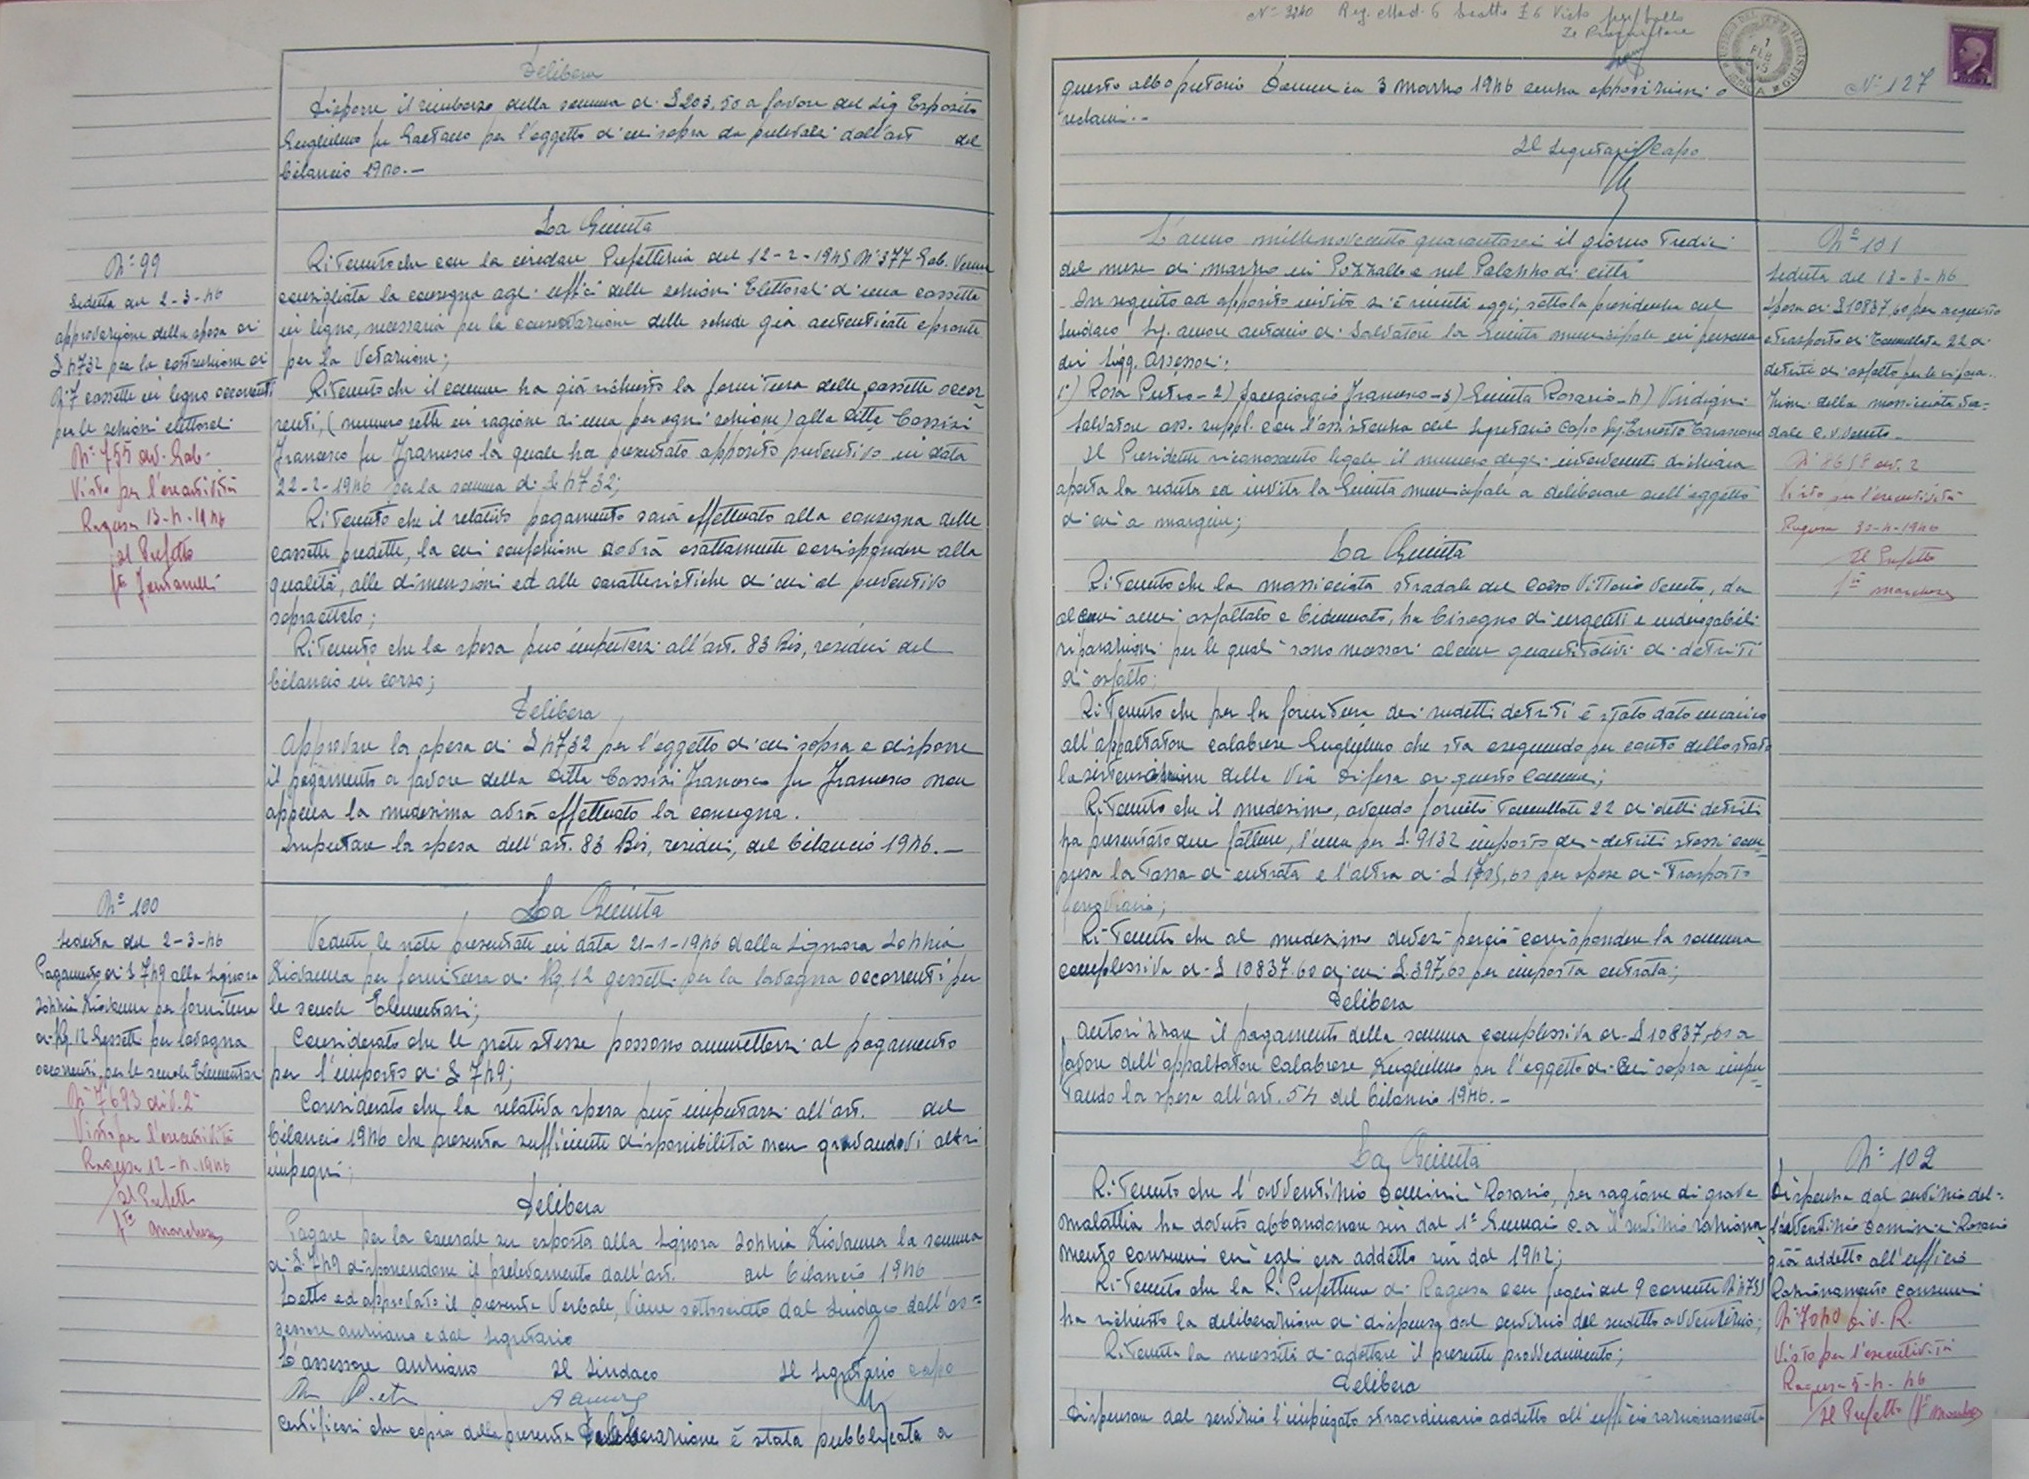 Delibera
Disporre il rimborso della somma di £ 203,50 a favore del Sig Esposito
Guglielmo fu Gaetano per l'oggetto di cui sopra da prelevarsi dall'art del
bilancio 1946.—
N° 99
Seduta del 2-3-46
approvazione della spesa di
£ 4732 per la costruzione di
N. 7 cassette in legno occorrenti
per le sezioni elettorali
N. 755 div. Gab.
Visto per l'esecutività
Ragusa 13-4-1946
Il Prefetto
La Giunta
Ritenuto che con la circolare Prefettizia del 12-2-1945 N. 377 Gab. venne
consigliata la consegna agli uffici delle sezioni Elettorali di una cassetta
in legno, necessaria per la conservazione delle schede già autenticate e pronte
per la Votazione;
Ritenuto che il comune ha già richiesto la fornitura delle cassette occor-
renti, (numero sette in ragione di una per ogni sezione) alla ditta Cassisi
Francesco fu Francesco la quale ha presentato apposito preventivo in data
22-2-1946 per la somma di £ 4732;
Ritenuto che il relativo pagamento sarà effettuato alla consegna delle
cassette predette, la cui confezione dovrà esattamente corrispondere alla
qualità, alle dimensioni ed alle caratteristiche di cui al preventivo
sopracitato;
Ritenuto che la spesa può imputarsi all'art. 83 Bis, residui del
bilancio in corso;
Delibera
Approvare la spesa di £ 4732 per l'oggetto di cui sopra e disporre
il pagamento a favore della ditta Cassisi Francesco fu Francesco non
appena la medesima avrà effettuato la consegna.
Imputare la spesa dell'art. 83 Bis, residui, del bilancio 1946.—
N° 100
Seduta del 2-3-46
Pagamento di £ 749 alla Signora
Giovanna per fornitura
di Kg. 12 Gessetti per lavagna
occorrenti per le scuole Elementari
N. 7693 div. 2ª
Visto per l'esecutività
Ragusa 12-4-1946
Il Prefetto
La Giunta
Vedute le note presentate in data 21-1-1946 dalla Signora
Giovanna per fornitura di Kg. 12 gessetti per la lavagna occorrenti per
le scuole Elementari;
Considerato che le note stesse possono ammettersi al pagamento
per l'importo di £ 749;
Considerato che la relativa spesa può imputarsi all'art. del
bilancio 1946 che presenta sufficiente disponibilità non gravandovi altri
impegni;
Delibera
Pagare per la causale su esposta alla Signora Giovanna la somma
di £ 749 disponendone il prelevamento dall'art. del bilancio 1946
Letto ed approvato il presente Verbale, viene sottoscritto dal Sindaco dall'as-
sessore anziano e dal Segretario
L'assessore anziano Il Sindaco Il Segretario capo
Certificasi che copia della presente Deliberazione è stata pubblicata a
N° 3240 Reg. Mod. 6 Esatto £ 6 Visto per bollo
Il Procuratore
N° 127
questo albo pretorio Domenica 3 marzo 1946 senza opposizioni o
reclami.—
Il Segretario Capo
L'anno millenovecento quarantasei il giorno tredici
del mese di marzo in Pozzallo e nel Palazzo di città
In seguito ad apposito invito si è riunita oggi, sotto la presidenza del
Sindaco Sig. Amore Antonio di Salvatore la Giunta municipale in persona
dei Sigg. Assessori:
1°) Rosa Pietro-2) Sangiorgio Francesco-3) Giunta Rosario-4) Vindigni
Salvatore ass. suppl. con l'assistenza del Segretario Capo Sig. Ernesto
Il Presidente riconosciuto legale il numero degli intervenuti dichiara
aperta la seduta ed invita la Giunta municipale a deliberare sull'oggetto
di cui a margine;
N° 101
Seduta del 13-3-46
Spesa di £ 10837.60 per acquisto
e trasporto di Tonnellate 22 di
detriti di asfalto per le ripara-
zioni della massicciata stra-
dale C. V. Veneto.
Visto per l'esecutività
Ragusa 30-4-1946
Il Prefetto
La Giunta
Ritenuto che la massicciata stradale del corso Vittorio Veneto, da
alcuni anni asfaltato e bitumato, ha bisogno di urgenti e inderogabili
riparazioni per le quali sono necessari alcuni quantitativi di detriti
di asfalto;
Ritenuto che per la fornitura dei sudetti detriti è stato dato incarico
all'appaltatore Calabrese Guglielmo che sta eseguendo per conto dello stato
la sistemazione della Via Difesa di questo Comune;
Ritenuto che il medesimo, avendo fornito Tonnellate 22 di detti detriti
ha presentato due fatture, l'una per £. 9132 importo dei detriti stessi com-
presa la tassa di entrata e l'altra di £ 1705,60 per spese di trasporto
ferroviario;
Ritenuto che al medesimo devesi perciò corrispondere la somma
complessiva di £ 10837.60 di cui £. 397,60 per imposta entrata;
Delibera
Autorizzare il pagamento della somma complessiva di £ 10837,60 a
favore dell'appaltatore Calabrese Guglielmo per l'oggetto di cui sopra impu-
tando la spesa all'art. 54 del bilancio 1946.—
N° 102
Dispensa dal servizio del-
l'avventizio Rosario
già addetto all'ufficio
Razionamento consumi
N. 7040 Div. R.
Visto per l'esecutività
Ragusa 5-4-46
Il Prefetto
La Giunta
Ritenuto che l'avventizio Rosario, per ragione di grave
malattia ha dovuto abbandonare sin dal 1° Gennaio c.a il servizio raziona-
mento consumi cui egli era addetto sin dal 1942;
Ritenuto che la R. Prefettura di Ragusa con foglio del 9 corrente
ha richiesto la deliberazione di dispensa dal servizio del sudetto avventizio;
Ritenuta la necessità di adottare il presente provvedimento;
Delibera
Dispensare dal servizio l'impiegato straordinario addetto all'ufficio razionamento